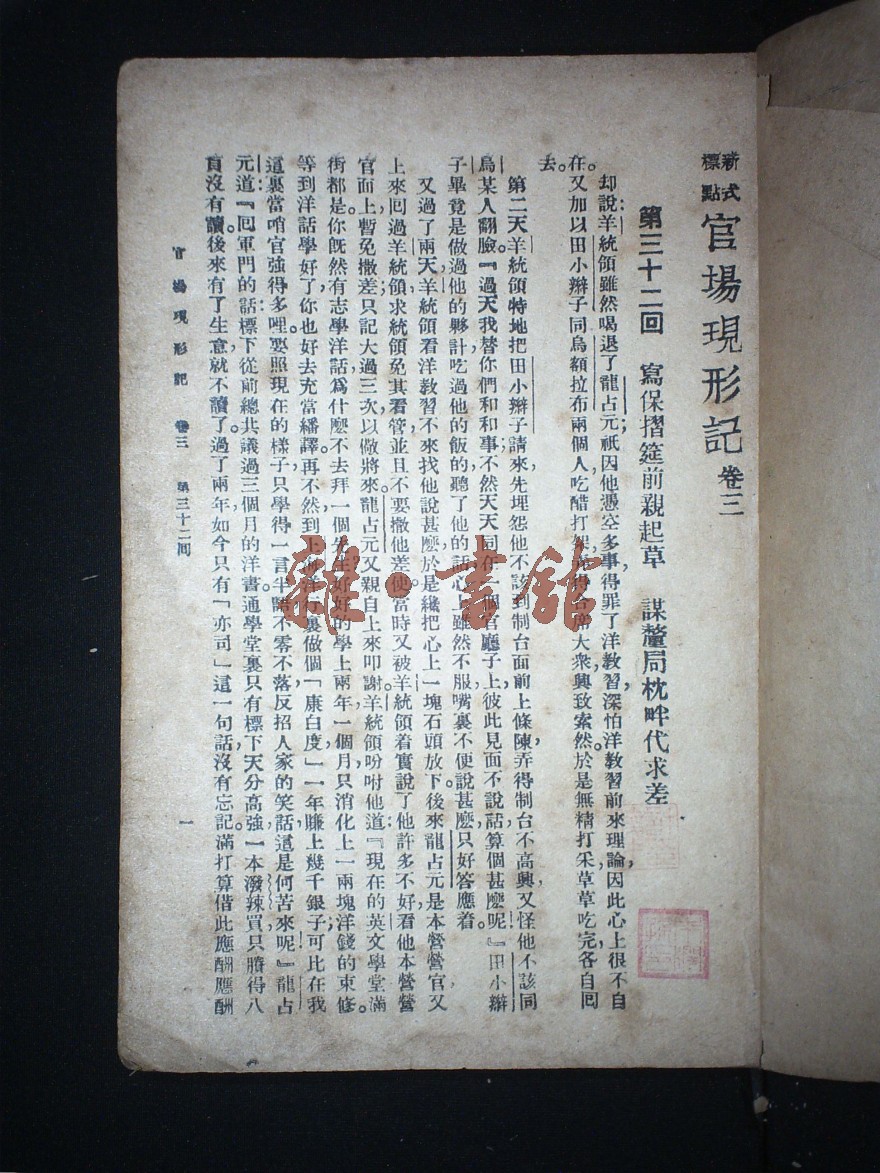 新式標點 官場現形記 卷三
第三十二回 寫保摺筵前親起草 謀釐局枕畔代求差
却說羊統領雖然喝退了龍占元;祇因他憑空多事,得罪了洋教習,深怕洋教習前來理論,因此心上很不自
在。又加以田小辮子同烏額拉布兩個人,吃醋打架,席大衆興致索然。於是無精打采,草草吃完,各自回
去。
第二天羊統領特地把田小辮子請來,先埋怨他不該到制台面前上條陳,弄得制台不高興,又怪他不該同
烏某人翻臉。『過天我替你們和和事;不然,天天同在一個官廳子上,彼此見面不說話,算個甚麼呢!』田小辮
子畢竟是做過他的夥計,吃過他的飯的,聽了他的話,心上雖然不服,嘴裏不便說甚麼,只好答應着。
又過了兩天,羊統領看洋教習不來找他說甚麼,於是纔把心上一塊石頭放下。後來龍占元是本營營官又
上來回過羊統領,求統領免其看管,並且不要撤他差使,當時又被羊統領着實說了他許多不好,看他本營營
官面上,暫免撤差,只記大過三次,以儆將來。龍占元又親自上來叩謝,羊統領吩咐他道:『現在的英文學堂滿
街都是,你旣然有志學洋話,爲什麼不去拜一個先生,好好的學上兩年,一個月只消化上一兩塊洋錢的束修。
等到洋話學好了,你也好去充當繙譯。再不然,到上海洋行裏做個「康白度」,一年賺上幾千銀子;可比在我
這裏當哨官強得多哩。要照現在的樣子,只學得一言半語,不零不落,反招人家的笑話,這是何苦來呢!』龍占
元道:『回軍門的話:標下從前總共議過三個月的洋書,通學堂裏只有標下天分高強,一本潑辣買,只賸得八
頁沒有讀,後來有了生意,就不讀了。過了兩年,如今只有「亦司」這一句話沒有忘記,滿打算借此應酬應酬
官場現形記 卷三 第三十二回
一
雜·書館